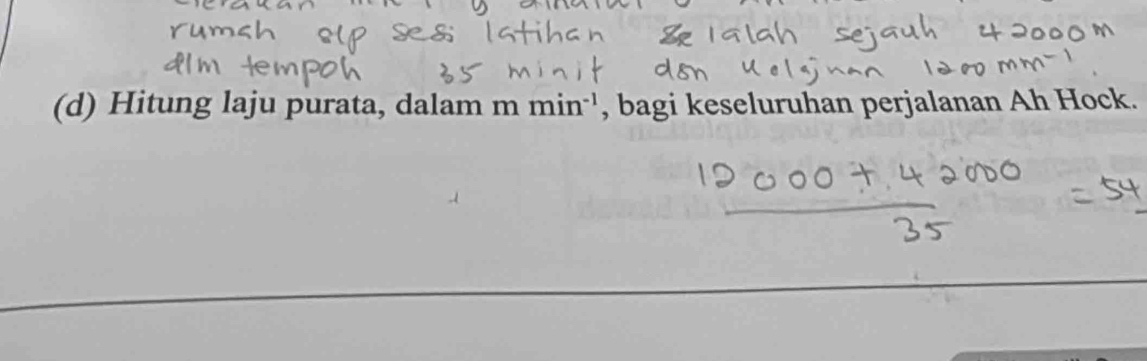 rumah slp sesi latihan ialah sejauh 42000m
dlm tempoh 35 minit dgn kelajuan 1200 mm⁻¹.
(d) Hitung laju purata, dalam m min⁻¹, bagi keseluruhan perjalanan Ah Hock.
12000 + 42000 = 54
35